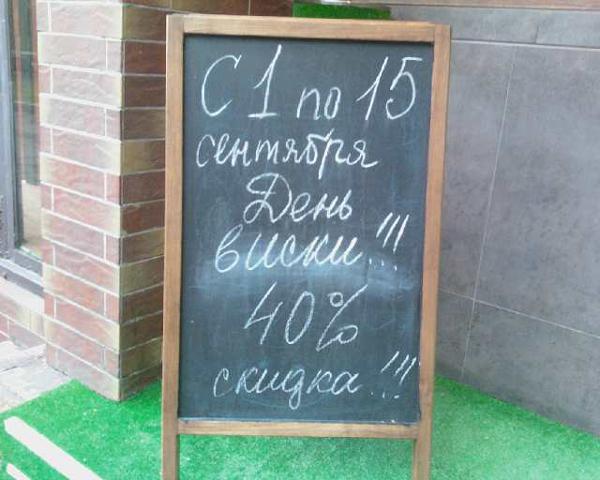 С 1 по 15
сентября
День
виски!!!
40%
скидка!!!